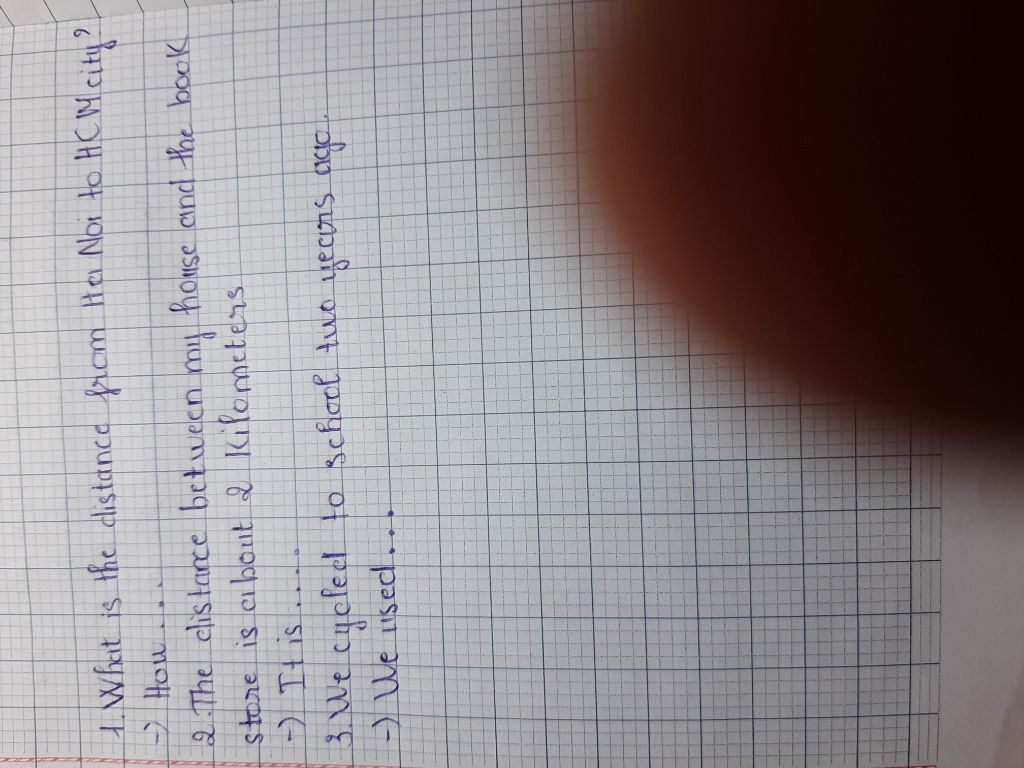 1. What is the distance from Ha Noi to HCM city?
-) How....
2. The distance between my house and the book
store is about 2 kilometers
-) It is....
3. We cycled to school two years ago.
-) We used....